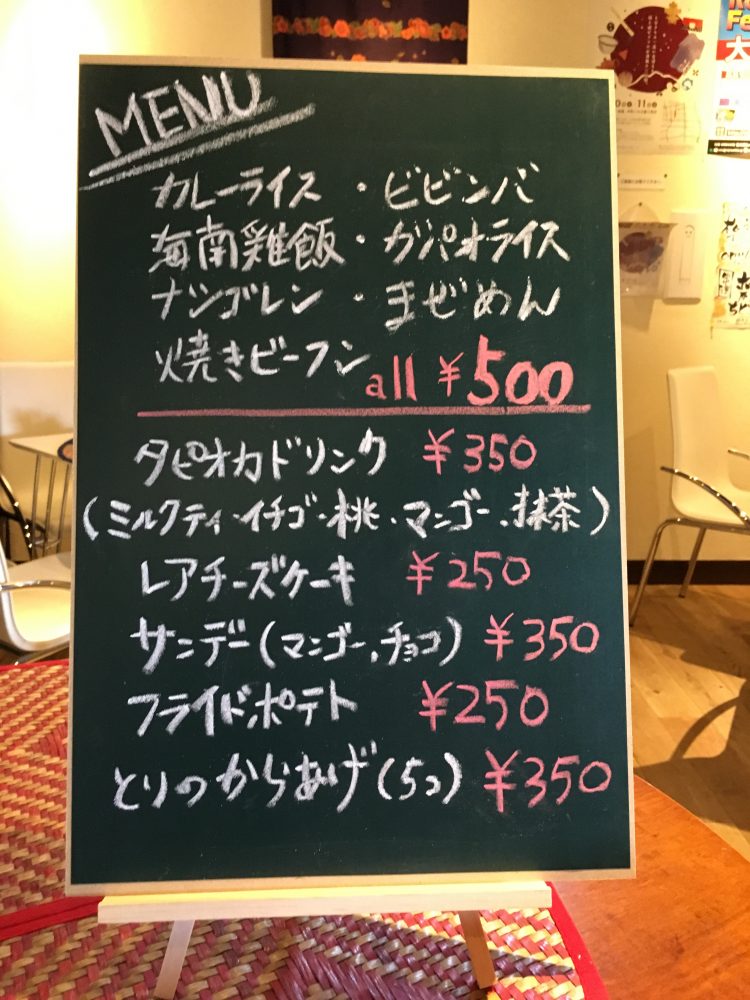 MENU
カレーライス・ビビンバ
海南雞飯・ガパオライス
ナシゴレン・まぜめん
焼きビーフン all ¥500
タピオカドリンク ¥350
(ミルクティ・イチゴ・桃・マンゴー・抹茶)
レアチーズケーキ ¥250
サンデー(マンゴー・チョコ) ¥350
フライドポテト ¥250
とりのからあげ(5コ) ¥350